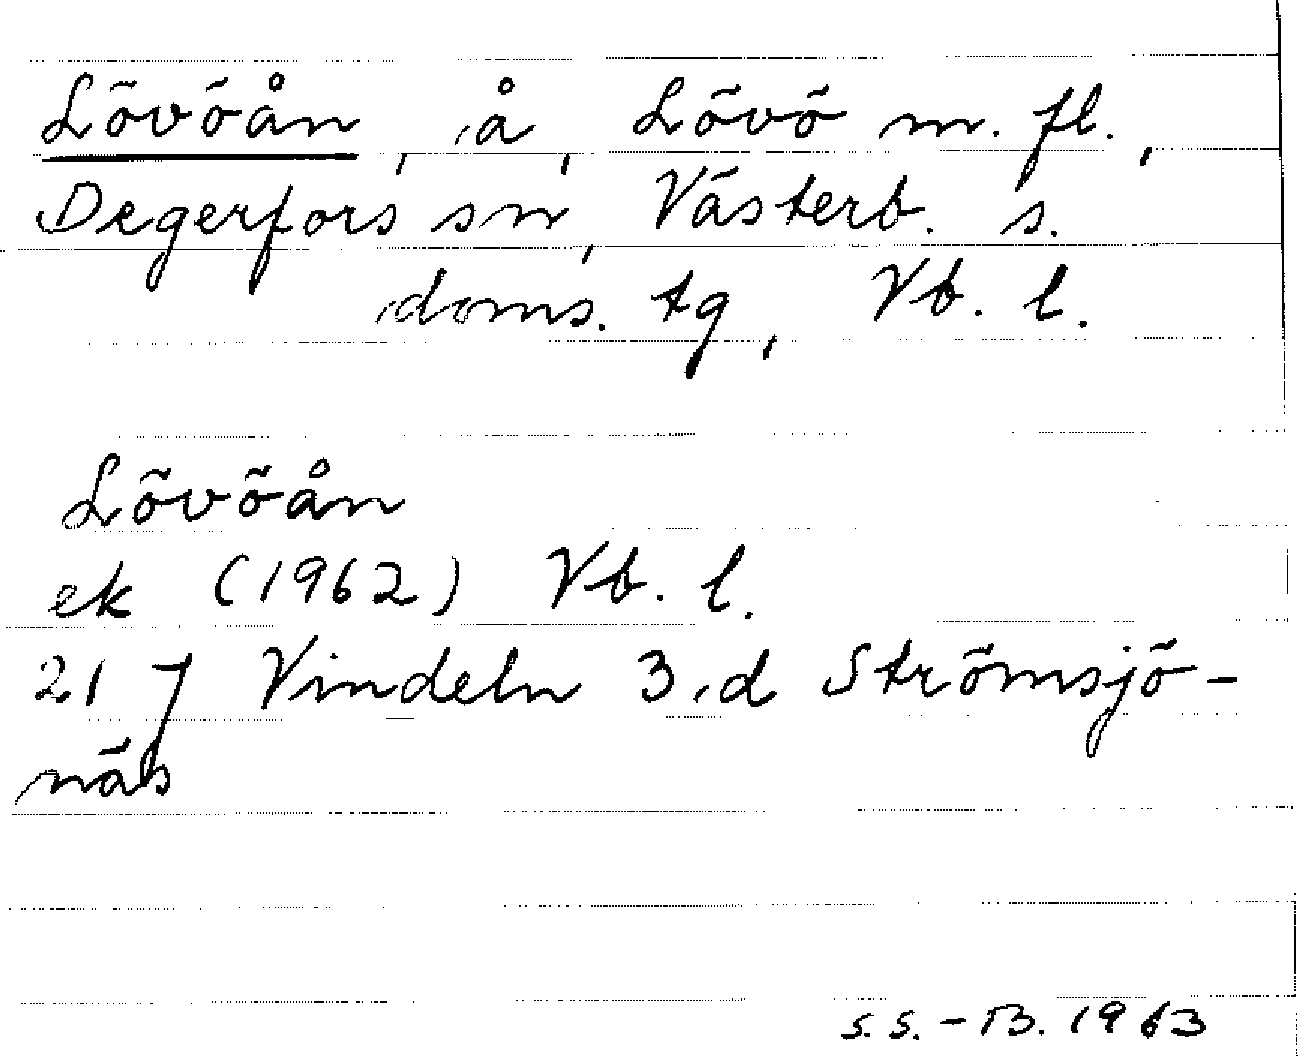 Lövöån, å, Lövö m. fl.,
Degerfors sn, Västerb. s.
doms. tg, Vb. l.
Lövöån
ek (1962) Vb. l.
21 J Vindeln 3 d Strömsjö-
näs
S.S.-B. 1963